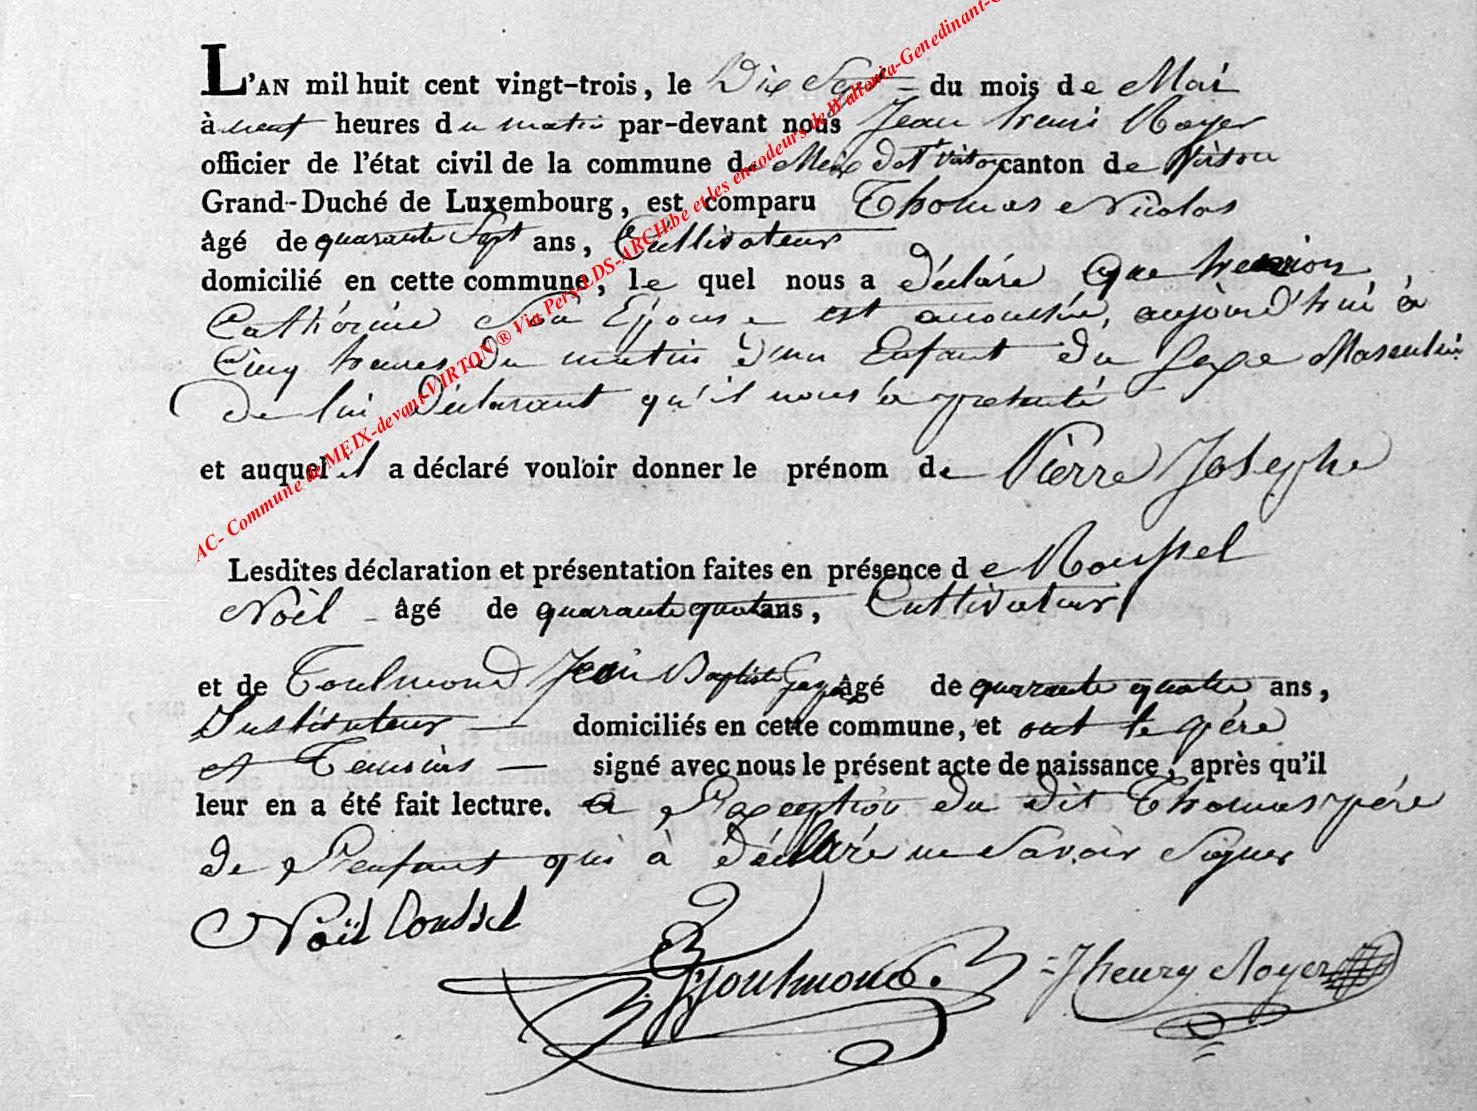 L'AN mil huit cent vingt-trois, le Dix Sept = du mois de Mai
à neuf heures du matin par-devant nous Jean henri Royer
officier de l'état civil de la commune de Meix dvt virton canton de Virton
Grand-Duché de Luxembourg, est comparu Thomas Nicolas
âgé de quarante Sept ans, Cultivateur
domicilié en cette commune, le quel nous a déclaré Que henrion
Cathérine Son Epouse est accouchée, aujourd'hui à
Cinq heures du matin d'un Enfant du Sexe Masculin
de lui déclarant qu'il nous a présenté
et auquel il a déclaré vouloir donner le prénom de Pierre Josephe
Lesdites déclaration et présentation faites en présence de Roussel
Noèl - âgé de quarante quatre ans, Cultivateur
et de Toulmond Jean Baptiste âgé de quarante quatre ans,
Instituteur — domiciliés en cette commune, et ont le père
et Temoins — signé avec nous le présent acte de naissance, après qu'il
leur en a été fait lecture. a L'exception du dit Thomas père
de L'enfant qui à déclaré ne Savoir Signer
Noël Roussel
Toulmond.
= Jhenry Royer
AC- Commune de MEIX-devant-VIRTON ® Via Pers-LDS-ARCH.be et les encodeurs de Wallonia-Genedinant-